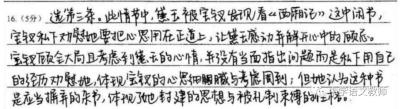 16.(5分) 选第三条。此情节中,黛玉被宝钗发现看《西厢记》这中闲书,
宝钗私下对黛玉要把心思用在正道上,让黛玉感动并解开心中的顾虑。
宝钗顾全大局且考虑到黛玉的心情,并没有当面指出问题而是私下用自己
的经历对黛玉,体现宝钗的心思细腻与考虑周到;但她认为这种书
是应当摒弃的杂书,体现了她封建的思想与被礼制束缚的性格。